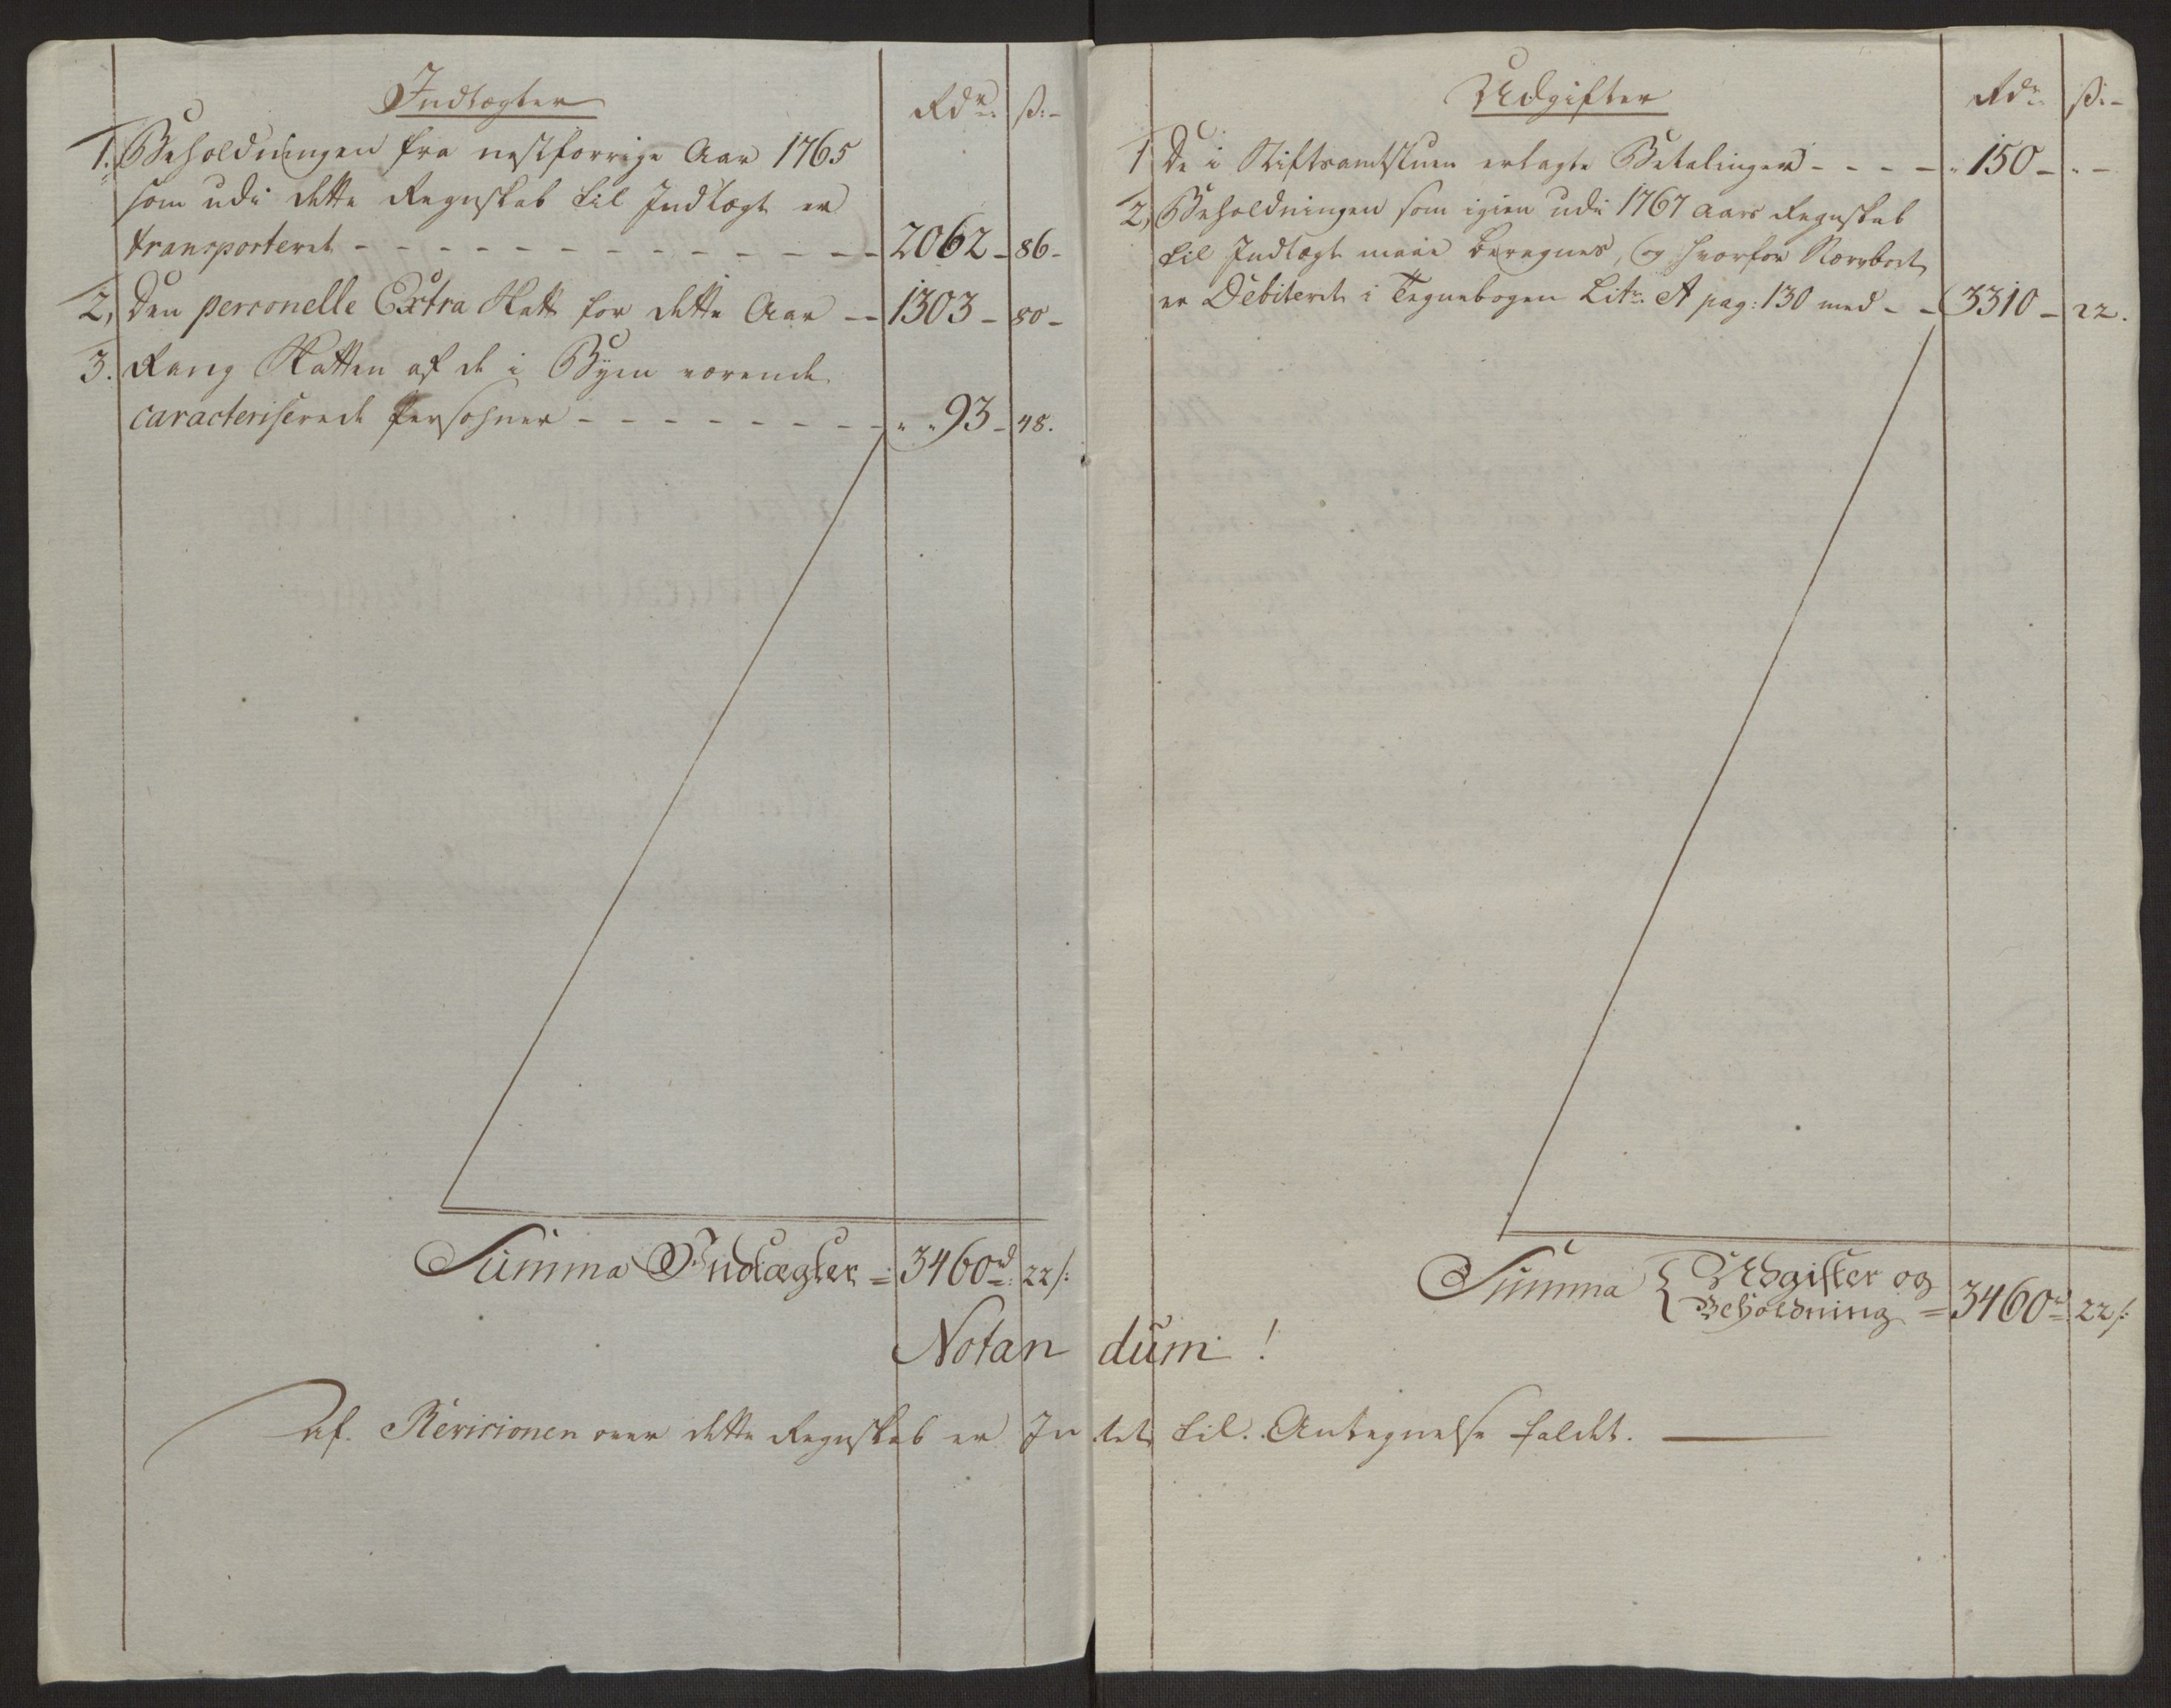 Indtægter
Rdr. ß.
1. Beholdningen fra nestforrige Aar 1765
som udi dette Regnskab til Indtægt er
transporteret - - - 2062 - 86 -
2, Den personelle Extra Skatt for dette Aar - - 1303 - 80 -
3. Rang Skatten af de i Byen værende
caracteriserede Persohner - - - " " 93 - 48.
Summa Indtægter = 3460rd: 22 s:
Udgifter
Rdr. ß.
1 De i Stiftsamtstuen erlagte Betalinger - - - - " 150 - " -
2, Beholdningen som igien udi 1767 Aars Regnskab
til Indtægt maae beregnes, og hvorfor
er Debiteret i Tegnebogen Litr. A pag: 130 med - - 3310 - 22.
Summa { Udgifter og
Beholdning = 3460rd: 22 s:
Notandum !
Af Revisionen over dette Regnskab er Intet til Antegnelse faldet.